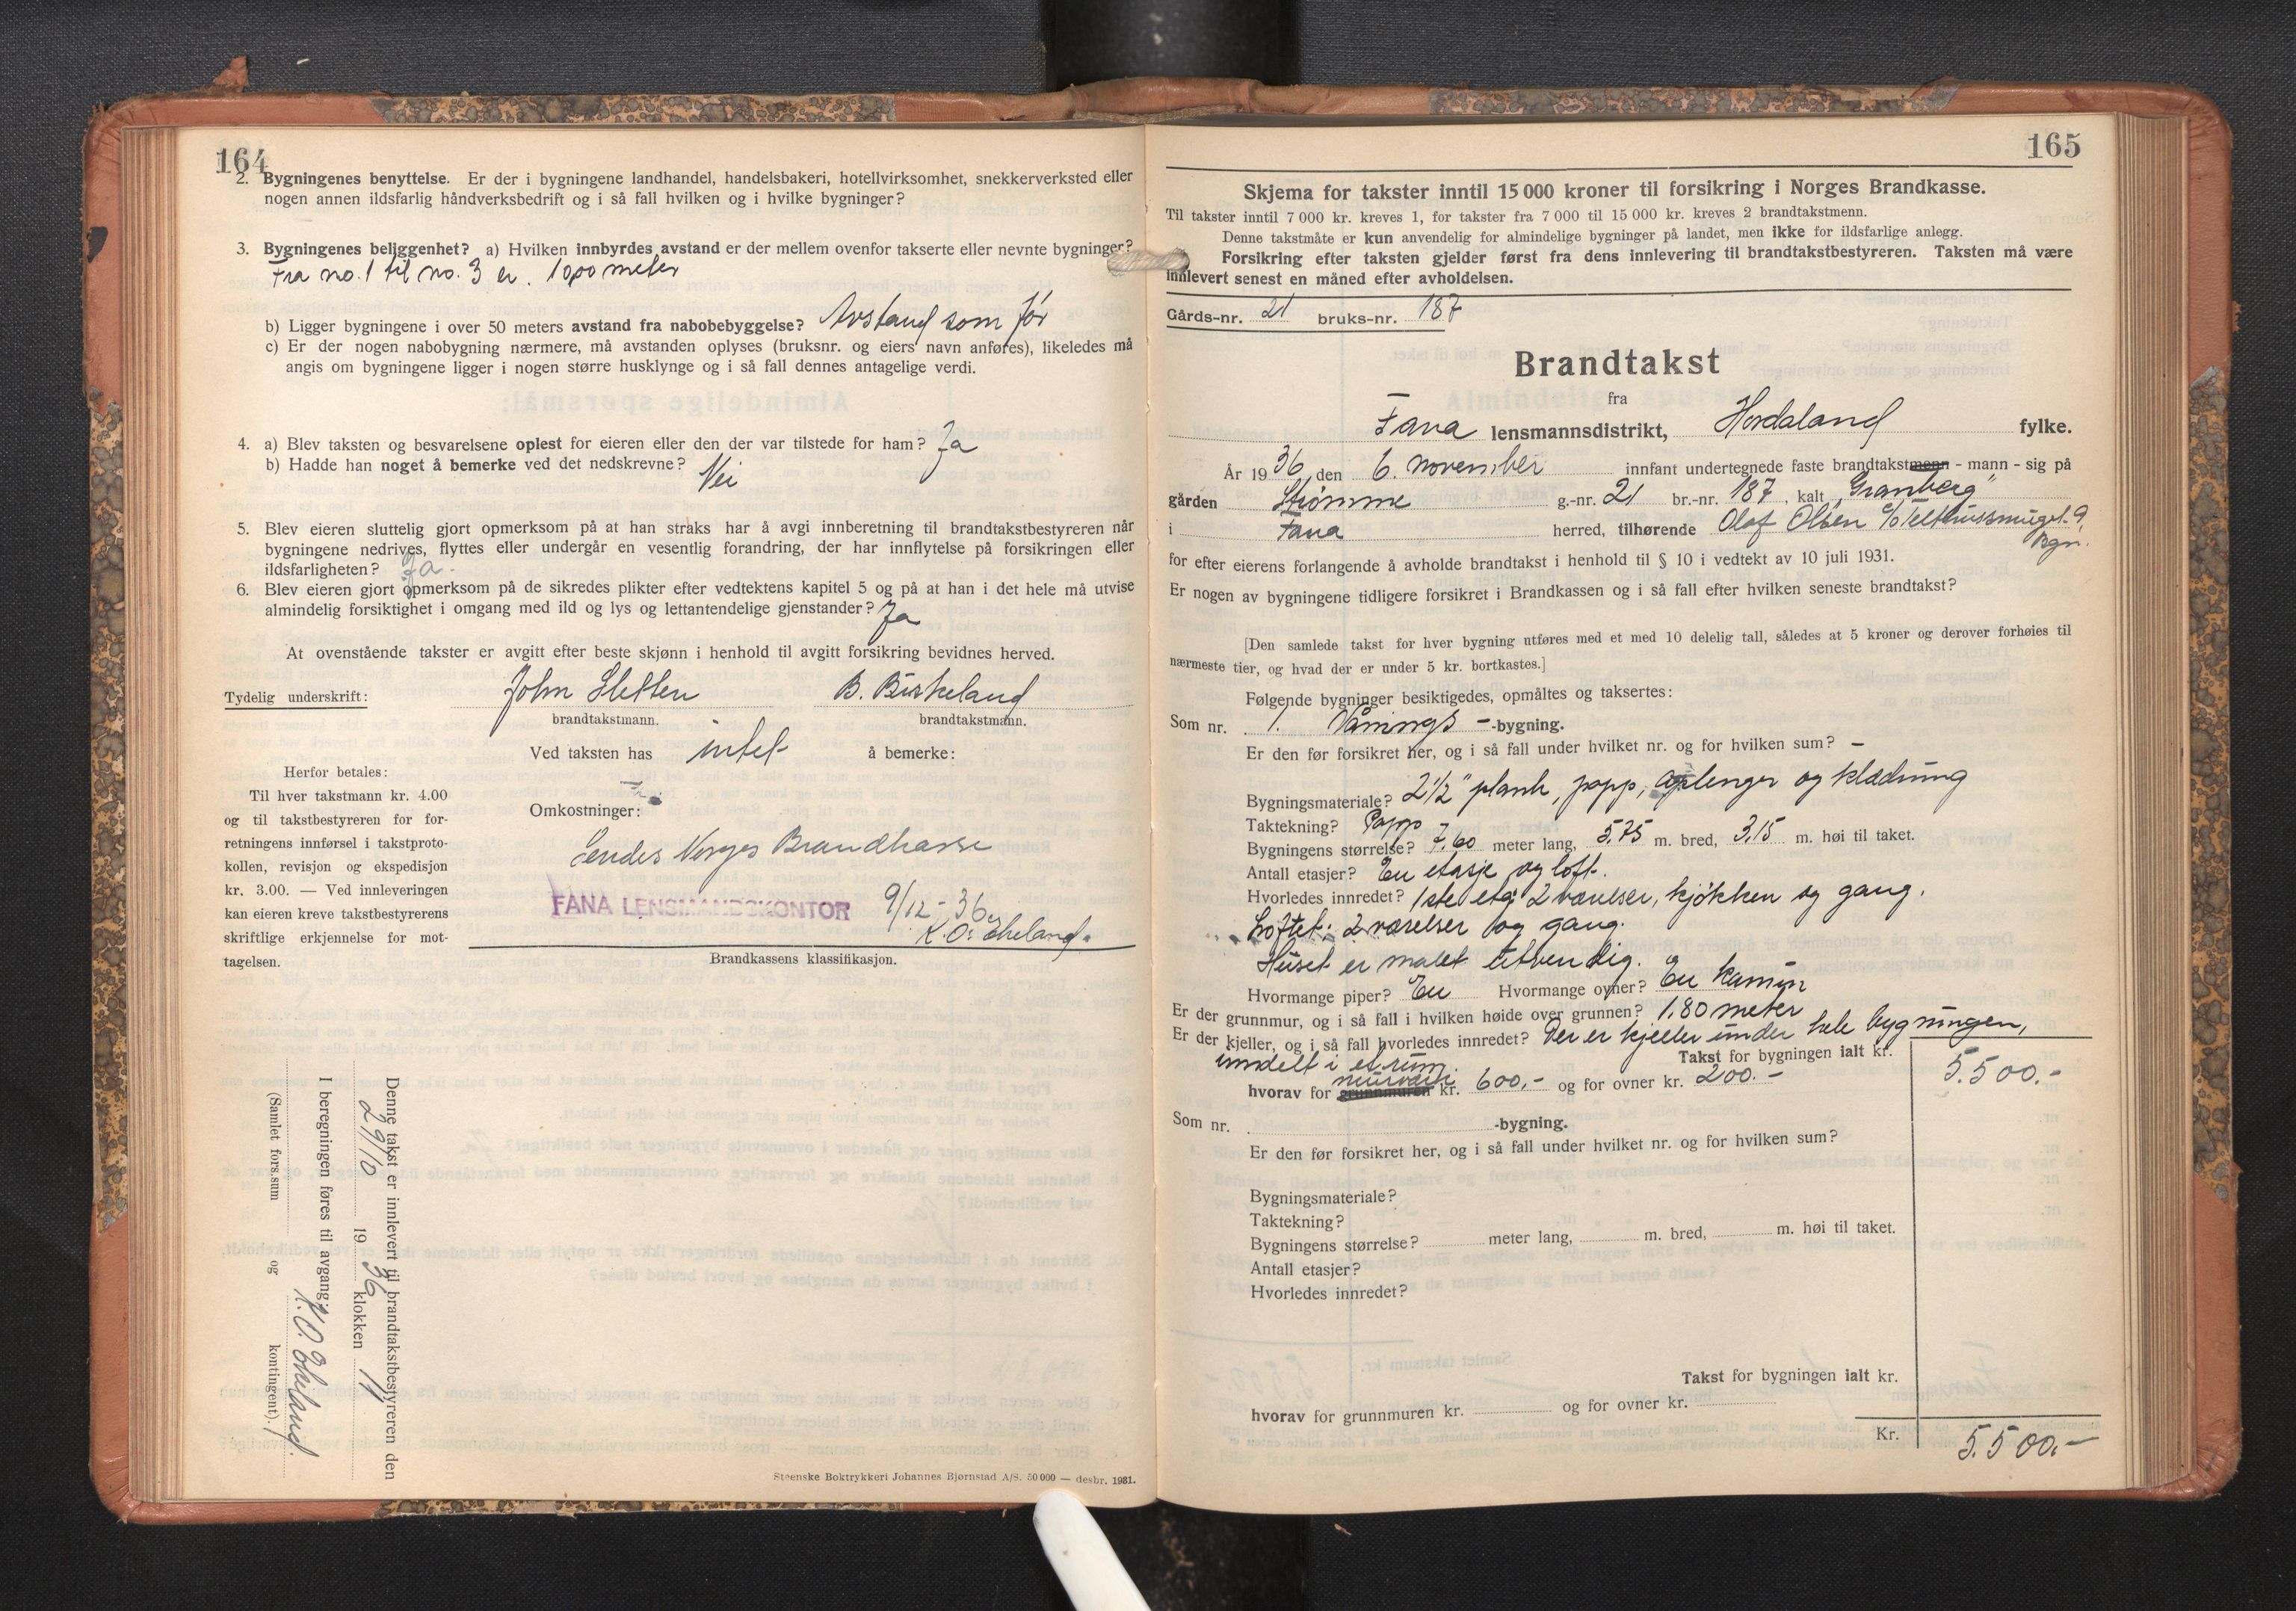 164
2. Bygningenes benyttelse. Er der i bygningene landhandel, handelsbakeri, hotellvirksomhet, snekkerverksted eller
nogen annen ildsfarlig håndverksbedrift og i så fall hvilken og i hvilke bygninger?
3. Bygningenes beliggenhet? a) Hvilken innbyrdes avstand er der mellem ovenfor takserte eller nevnte bygninger?
Fra no. 1 til no. 3 er. 1000 meter
b) Ligger bygningene i over 50 meters avstand fra nabobebyggelse? Avstand som før
c) Er der nogen nabobygning nærmere, må avstanden oplyses (bruksnr. og eiers navn anføres), likeledes må
angis om bygningene ligger i nogen større husklynge og i så fall dennes antagelige verdi.
4. a) Blev taksten og besvarelsene oplest for eieren eller den der var tilstede for ham? Ja
b) Hadde han noget å bemerke ved det nedskrevne? Nei
5. Blev eieren sluttelig gjort opmerksom på at han straks har å avgi innberetning til brandtakstbestyreren når
bygningene nedrives, flyttes eller undergår en vesentlig forandring, der har innflytelse på forsikringen eller
ildsfarligheten? Ja.
6. Blev eieren gjort opmerksom på de sikredes plikter efter vedtektens kapitel 5 og på at han i det hele må utvise
almindelig forsiktighet i omgang med ild og lys og lettantendelige gjenstander? Ja
At ovenstående takster er avgitt efter beste skjønn i henhold til avgitt forsikring bevidnes herved.
Tydelig underskrift: John Sletten B. Birkeland
brandtakstmann. brandtakstmann.
Ved taksten has intet å bemerke:
Herfor betales:
Til hver takstmann kr. 4.00
og til takstbestyreren for for-
retningens innførsel i takstproto-
kollen, revisjon og ekspedisjon
kr. 3.00. — Ved innleveringen
kan eieren kreve takstbestyrerens
skriftlige erkjennelse for mot-
tagelsen.
Omkostninger:
Sendes Norges Brandkasse
FANA LENSMANDSKONTOR 9/12-36
K. O. Ekeland.
Brandkassens klassifikasjon.
Denne takst er innlevert til brandtakstbestyreren den
29/10 1936 klokken 11
I beregningen føres til avgang: K. O. Ekeland.
(Samlet fors.sum og kontingent).
Steenske Boktrykkeri Johannes Bjørnstad A/S. 50 000 — desbr. 1931.
165
Skjema for takster inntil 15 000 kroner til forsikring i Norges Brandkasse.
Til takster inntil 7 000 kr. kreves 1, for takster fra 7 000 til 15 000 kr. kreves 2 brandtakstmenn.
Denne takstmåte er kun anvendelig for almindelige bygninger på landet, men ikke for ildsfarlige anlegg.
Forsikring efter taksten gjelder først fra dens innlevering til brandtakstbestyreren. Taksten må være
innlevert senest en måned efter avholdelsen.
Gårds-nr. 21 bruks-nr. 187
Brandtakst
fra
Fana lensmannsdistrikt, Hordaland fylke.
År 1936, den 6. november innfant undertegnede faste brandtakstmenn - mann - sig på
gården Strømme g.-nr. 21 br.-nr. 187, kalt „Granberg"
i Fana herred, tilhørende Olaf Olsen c/o Telthussmuget 9,
Bgn.
for efter eierens forlangende å avholde brandtakst i henhold til § 10 i vedtekt av 10 juli 1931.
Er nogen av bygningene tidligere forsikret i Brandkassen og i så fall efter hvilken seneste brandtakst?
[Den samlede takst for hver bygning utføres med et med 10 delelig tall, således at 5 kroner og derover forhøies til
nærmeste tier, og hvad der er under 5 kr. bortkastes.]
Følgende bygninger besiktigedes, opmåltes og taksertes:
Som nr. 1. Vånings - -bygning.
Er den før forsikret her, og i så fall under hvilket nr. og for hvilken sum? —
Bygningsmateriale? 2½" plank, papp, oplenger og klædning
Taktekning? Papp
Bygningens størrelse? 7,60 meter lang, 5,75 m. bred, 3,15 m. høi til taket.
Antall etasjer? En etasje og loft.
Hvorledes innredet? 1ste etg: 2 værelser, kjøkken og gang.
Loftet: 2 værelser og gang.
Huset er malet utvendig.
Hvormange piper? En Hvormange ovner? En kamin
Er der grunnmur, og i så fall i hvilken høide over grunnen? 1,80 meter
Er der kjeller, og i så fall hvorledes innredet? Der er kjeller under hele bygningen,
inndelt i et rum.
Takst for bygningen ialt kr. 5.500.-
hvorav for grunnmuren murværk kr. 600,- og for ovner kr. 200.-
Som nr. -bygning.
Er den før forsikret her, og i så fall under hvilket nr. og for hvilken sum?
Bygningsmateriale?
Taktekning?
Bygningens størrelse? meter lang, m. bred, m. høi til taket.
Antall etasjer?
Hvorledes innredet?
Takst for bygningen ialt kr.
hvorav for grunnmuren kr. og for ovner kr.
Kr. 5.500,-